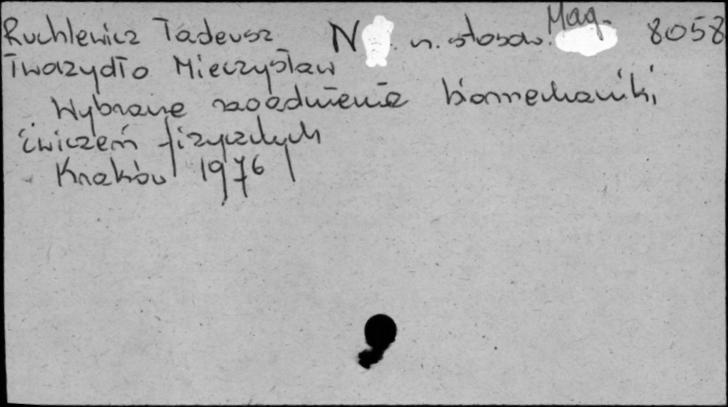 Ruchlewicz Tadeusz N n. stosow. Mag. 8058
Twarzydło Mieczysław
Wybrane zagadnienia biomechaniki
ćwiczeń fizycznych
Kraków 1976